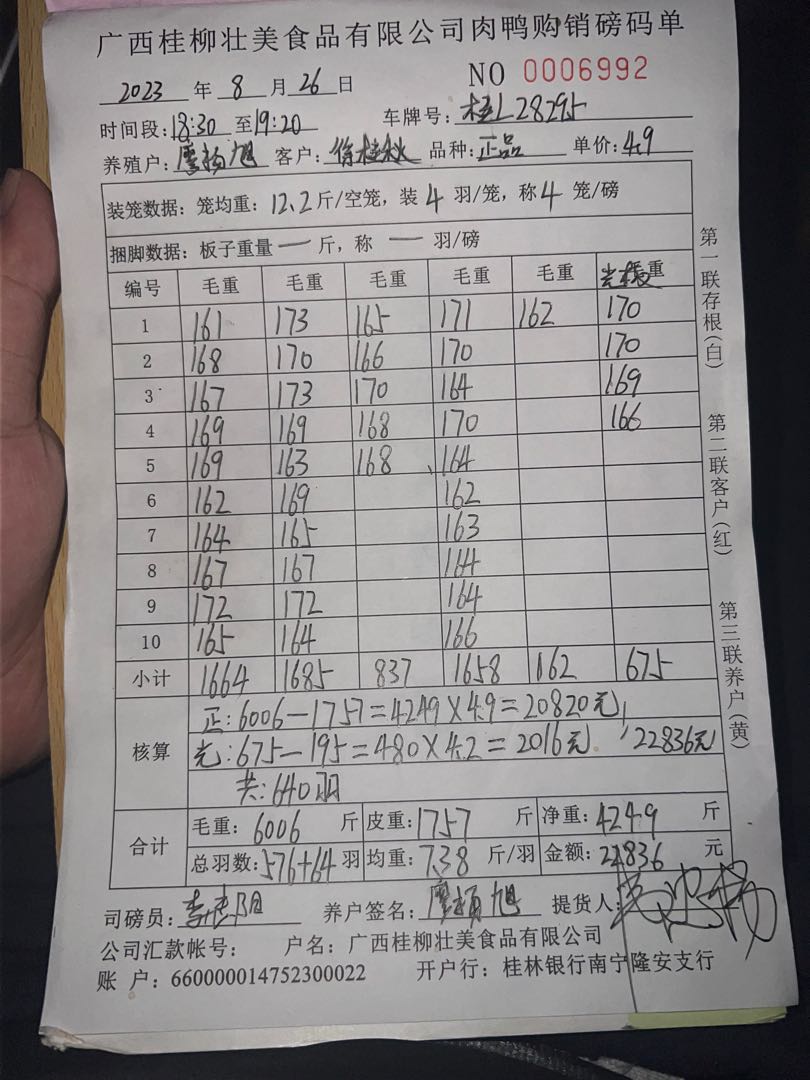 广西桂柳壮美食品有限公司肉鸭购销磅码单
2023 年 8 月 26 日 NO 0006992
时间段:18:30 至19:20 车牌号: 桂L28295
养殖户: 廖杨旭 客户: 徐桂秋 品种: 正品 单价: 4.9
装笼数据: 笼均重: 12.2 斤/空笼, 装 4 羽/笼, 称 4 笼/磅
捆脚数据: 板子重量 一 斤, 称 一 羽/磅
编号 毛重 毛重 毛重 毛重 毛重 重
1 161 173 165 171 162 170
2 168 170 166 170 170
3 167 173 170 164 169
4 169 169 168 170 166
5 169 163 168 164
6 162 169 162
7 164 165 163
8 167 167 164
9 172 172 164
10 165 164 166
小计 1664 1685 837 1658 162 675
核算
正:6006-1757=4249×4.9=20820元
光:675-195=480×4.2=2016元 22836元
共:640羽
合计
毛重: 6006 斤 皮重: 1757 斤 净重: 4249 斤
总羽数: 576+64 羽 均重: 7.38 斤/羽 金额: 22836 元
司磅员: 养户签名: 廖杨旭 提货人:
公司汇款帐号: 户名: 广西桂柳壮美食品有限公司
账 户: 660000014752300022 开户行: 桂林银行南宁隆安支行
第一联存根(白)
第二联客户(红)
第三联养户(黄)